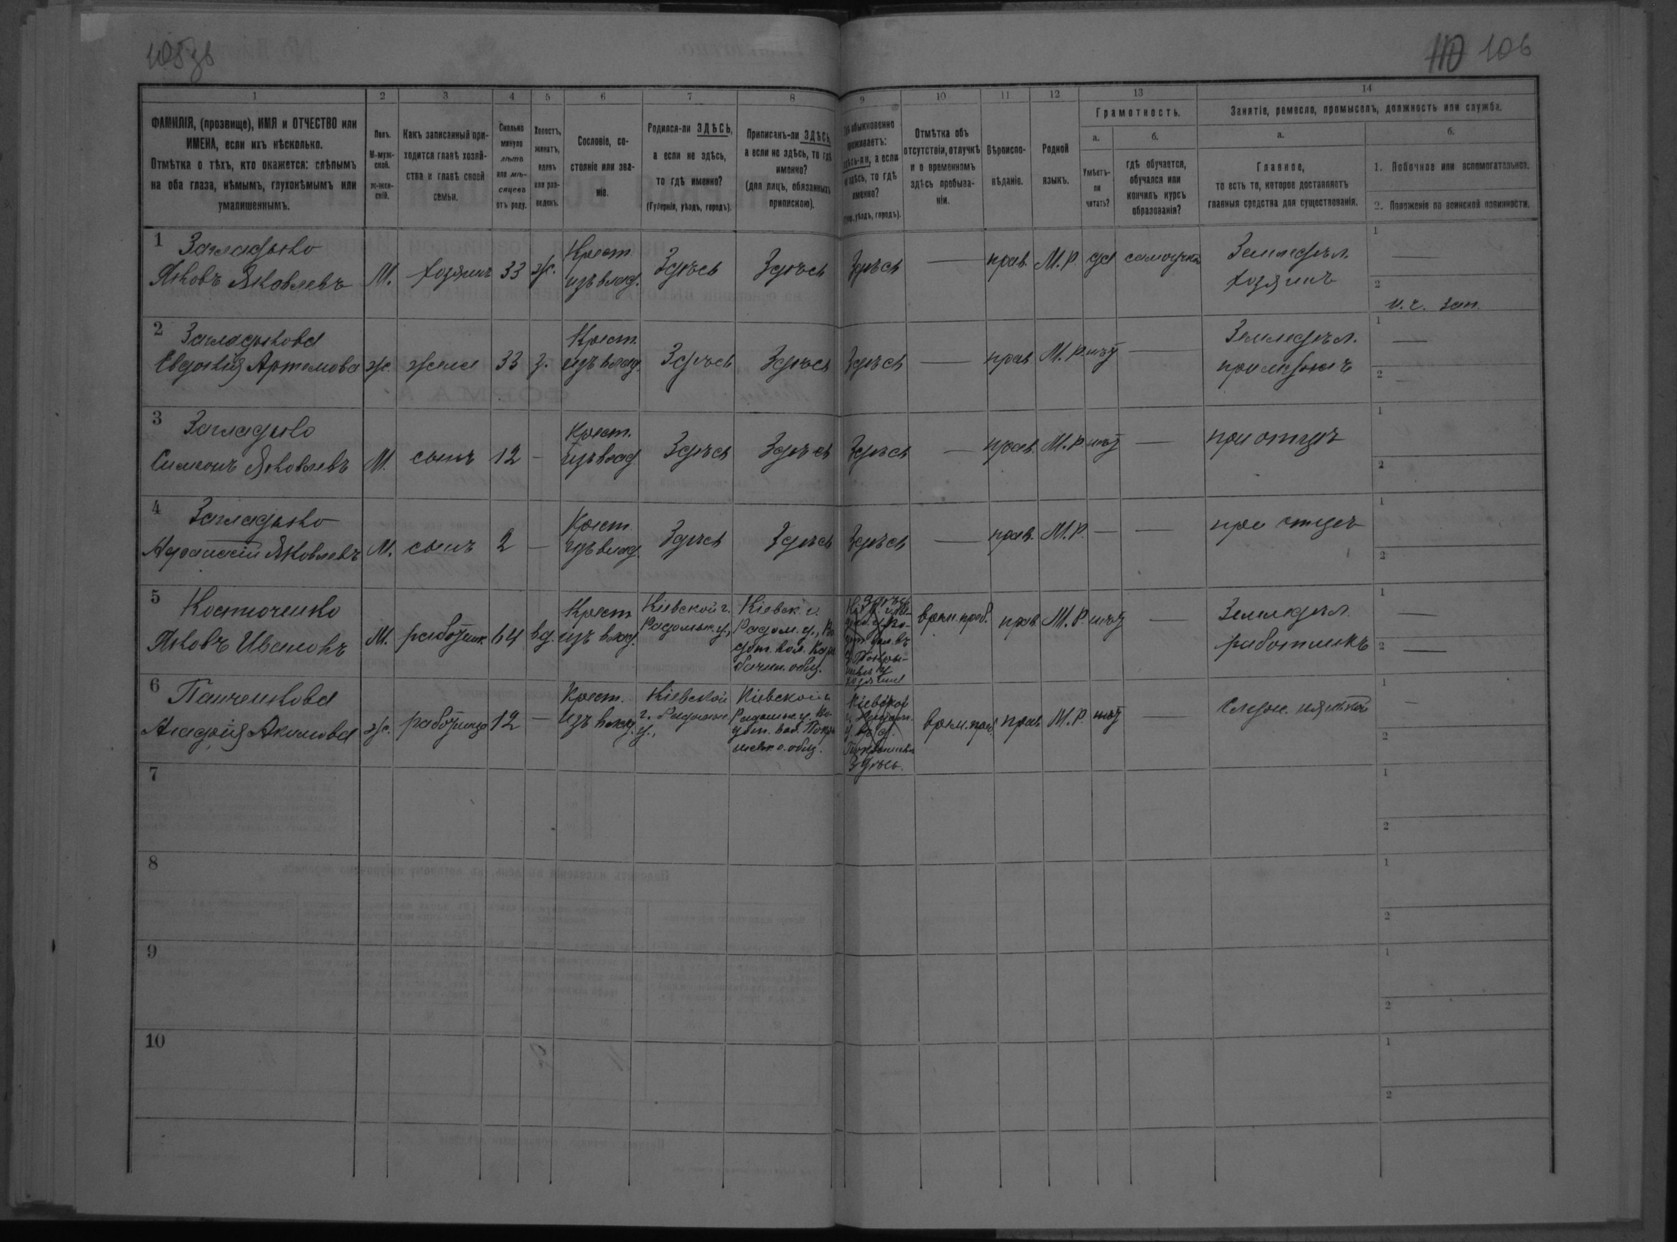 105 об
110 106
1
2
3
4
5
6
7
8
9
10
11
12
13
14
ФАМИЛІЯ, (прозвище), ИМЯ и ОТЧЕСТВО или
ИМЕНА, если ихъ нѣсколько.
Отмѣтка о тѣхъ, кто окажется: слѣпымъ
на оба глаза, нѣмымъ, глухонѣмымъ или
умалишеннымъ.
Полъ.
М-мужской.
ж-женскій.
Какъ записанный приходится
главѣ хозяйства
и главѣ своей
семьи.
Сколько
минуло
лѣтъ
или мѣсяцевъ
отъ роду.
Холостъ,
женатъ,
вдовъ
или разведенъ.
Сословіе, состояніе
или званіе.
Родился-ли ЗДѢСЬ,
а если не здѣсь,
то гдѣ именно?
(Губернія, уѣздъ, городъ).
Приписанъ-ли ЗДѢСЬ,
а если не здѣсь, то гдѣ
именно?
(для лицъ, обязанныхъ
припискою).
обыкновенно
проживаетъ:
здѣсь-ли, а если
не здѣсь, то гдѣ
именно?
уѣздъ, городъ).
Отмѣтка объ
отсутствіи, отлучкѣ
и о временномъ
здѣсь пребываніи.
Вѣроисповѣданіе.
Родной
языкъ.
Грамотность.
а.
Умѣетъ-ли
читать?
б.
гдѣ обучается,
обучался или
кончилъ курсъ
образованія?
Занятіе, ремесло, промыселъ, должность или служба.
а.
Главное,
то есть то, которое доставляетъ
главныя средства для существованія.
б.
1. Побочное или вспомогательное.
2. Положеніе по воинской повинности.
1 Загладько
Яковъ Яковлевъ М. хозяинъ 33 ж. Крест. изъ влад. Здѣсь Здѣсь Здѣсь — прав. М.Р. да самоучка Земледѣл. хозяинъ 1 — 2
2 Загладькова
Евдокія Артемова ж. жена 33 з. Крест. изъ влад. Здѣсь Здѣсь Здѣсь — прав. М.Р. нѣтъ — Земледѣл. при мужѣ 1 — 2 —
3 Загладько
Симеонъ Яковлевъ М. сынъ 12 — Крест. изъ влад. Здѣсь Здѣсь Здѣсь — прав. М.Р. нѣтъ — при отцѣ 1 2
4 Загладько
Афанасій Яковлевъ М. сынъ 2 — Крест. изъ влад. Здѣсь Здѣсь Здѣсь — прав. М.Р. — — при отцѣ 1 2
5 Костюченко
Яковъ Ивановъ М. работник 64 вд. Крест. изъ влад. Кіевской г. Радомыс. у., Кіевск. г. Радом. у., общ. Здѣсь врем. преб. прав. М.Р. нѣтъ — Земледѣл. работникъ 1 — 2 —
6 Панченкова
Акимова ж. работница 12 — Крест. изъ влад. Кіевской г. Радомыс. у., Кіевской г. Радомыс. у. общ. Здѣсь. врем. преб. прав. М.Р. нѣтъ — 1 — 2
7
1
2
8
1
2
9
1
2
10
1
2